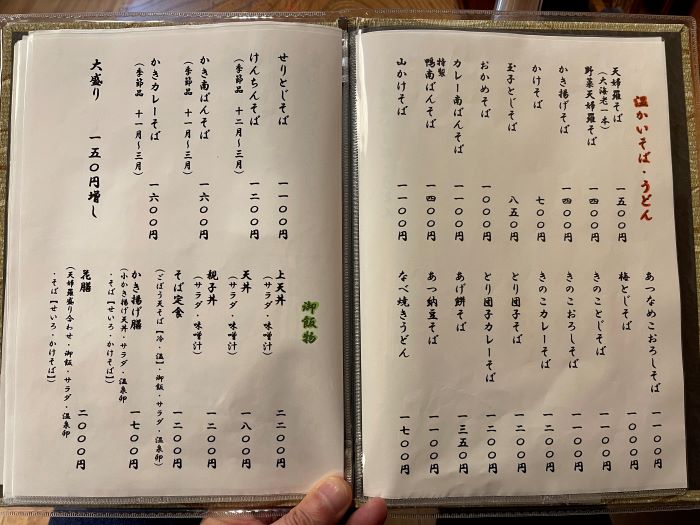 温かいそば・うどん
天婦羅そば 一五〇〇円
(大海老一本)
野菜天婦羅そば 一四〇〇円
かき揚げそば 一四〇〇円
かけそば 七〇〇円
玉子とじそば 八五〇円
おかめそば 一〇〇〇円
カレー南ばんそば 一一〇〇円
特製
鴨南ばんそば 一四〇〇円
山かけそば 一一〇〇円
あつなめこおろしそば 一一〇〇円
梅とじそば 一〇〇〇円
きのことじそば 一一〇〇円
きのこおろしそば 一一〇〇円
きのこカレーそば 一二〇〇円
とり団子そば 一二〇〇円
とり団子カレーそば 一二〇〇円
あげ餅そば 一三五〇円
あつ納豆そば 一一〇〇円
なべ焼きうどん 一七〇〇円
せりとじそば 一一〇〇円
けんちんそば 一二〇〇円
(季節品 十二月〜三月)
かき南ばんそば 一六〇〇円
(季節品 十一月〜三月)
かきカレーそば 一六〇〇円
(季節品 十一月〜三月)
大盛り 一五〇円増し
御飯物
上天丼 二二〇〇円
(サラダ・味噌汁)
天丼 一八〇〇円
(サラダ・味噌汁)
親子丼 一二〇〇円
(サラダ・味噌汁)
そば定食 一二〇〇円
(ごぼう天そば【冷・温】・御飯・サラダ・温泉卵)
かき揚げ膳 一七〇〇円
(小かき揚げ天丼・サラダ・温泉卵
・そば【せいろ・かけそば】)
花膳 二〇〇〇円
(天婦羅盛り合わせ・御飯・サラダ・温泉卵
・そば【せいろ・かけそば】)